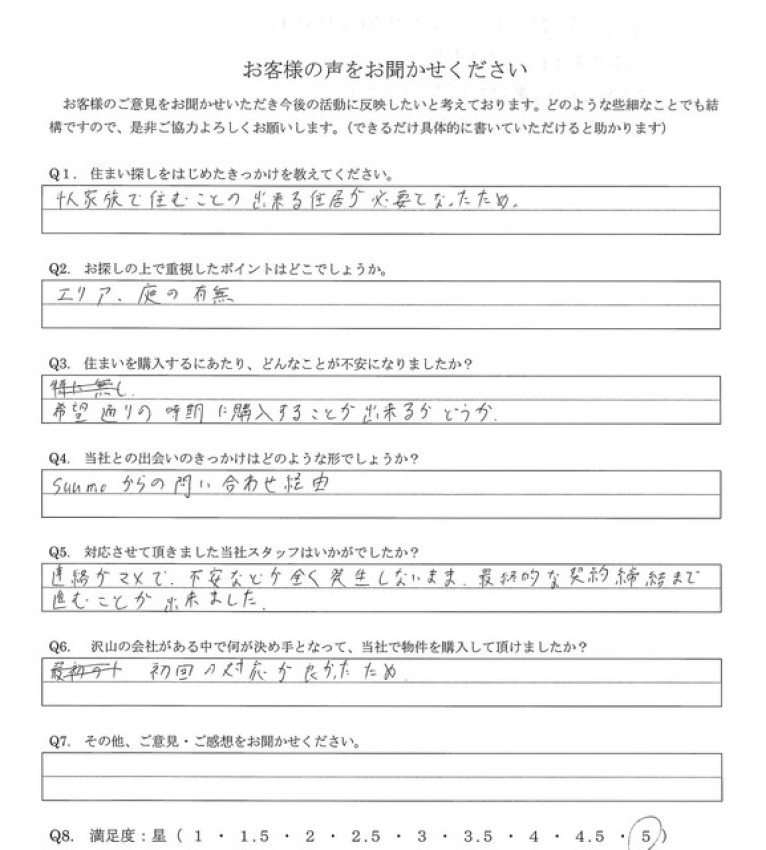 お客様の声をお聞かせください
お客様のご意見をお聞かせいただき今後の活動に反映したいと考えております。どのような些細なことでも結
構ですので、是非ご協力よろしくお願いします。（できるだけ具体的に書いていただけると助かります）
Q1. 住まい探しをはじめたきっかけを教えてください。
4人家族で住むことの出来る住居が必要となったため。
Q2. お探しの上で重視したポイントはどこでしょうか。
エリア、庭の有無
Q3. 住まいを購入するにあたり、どんなことが不安になりましたか？
特に無し.
希望通りの時期に購入することが出来るかどうか.
Q4. 当社との出会いのきっかけはどのような形でしょうか？
Suumoからの問い合わせ経由
Q5. 対応させて頂きました当社スタッフはいかがでしたか？
連絡がマメで、不安などが全く発生しないまま、最終的な契約締結まで
進むことが出来ました.
Q6. 沢山の会社がある中で何が決め手となって、当社で物件を購入して頂けましたか？
最初の 初回の対応が良かったため.
Q7. その他、ご意見・ご感想をお聞かせください。
Q8. 満足度：星（ 1 ・ 1.5 ・ 2 ・ 2.5 ・ 3 ・ 3.5 ・ 4 ・ 4.5 ・ 5 ）